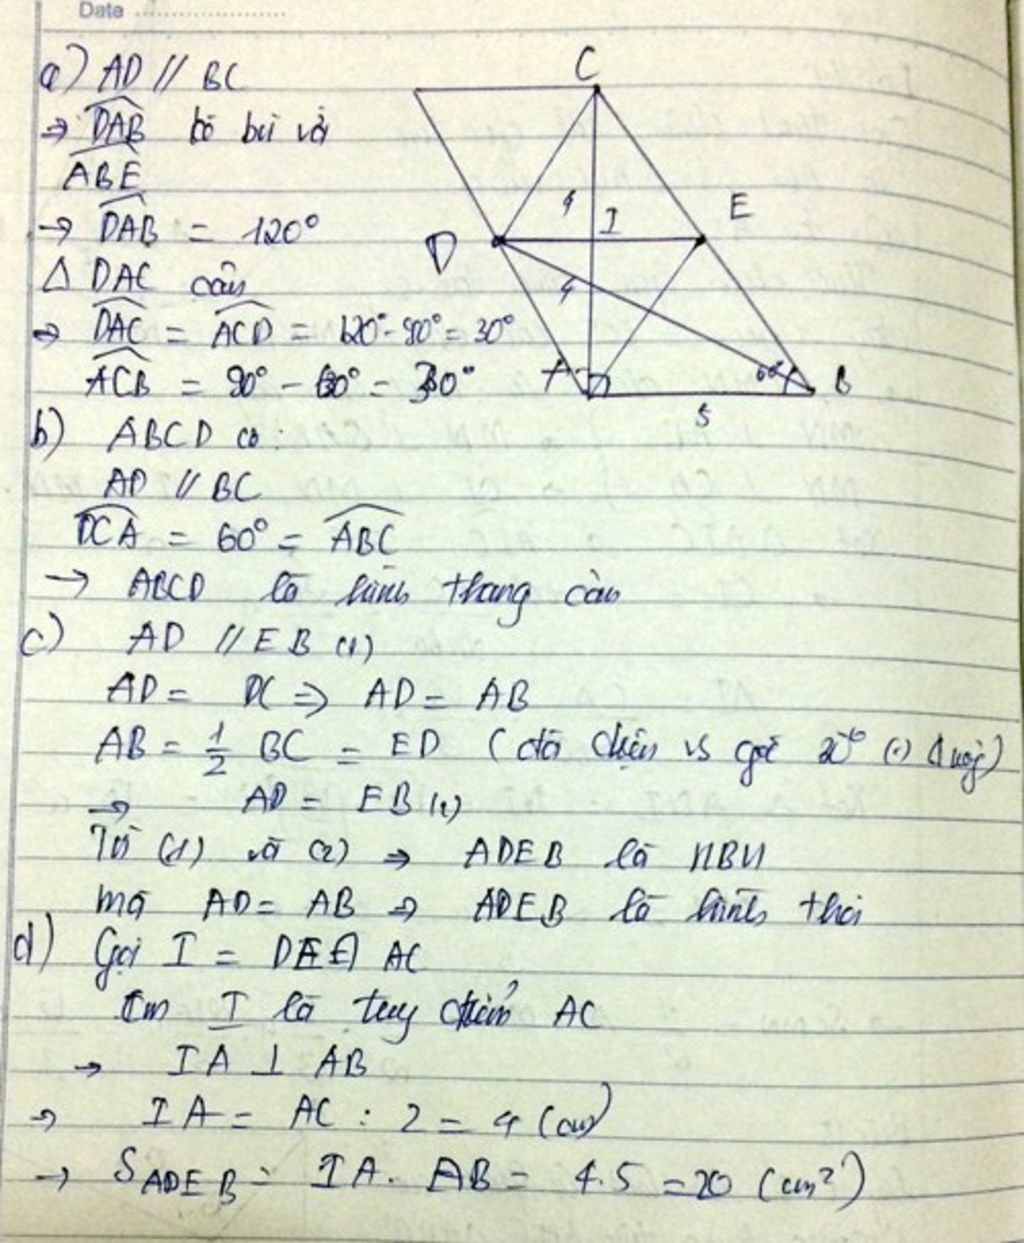 Date
a) AD // BC
→ DAB bù với
ABE
→ DAB = 120°
Δ DAC cân
→ DAC = ACD = 120° - 90° = 30°
ACB = 90° - 60° = 30°
b) ABCD có:
AD // BC
DCA = 60° = ABC
→ ABCD là hình thang cân
c) AD // EB (1)
AD = DC ⇒ AD = AB
AB = 1/2 BC = ED (đối diện vs góc Δ
→ AD = EB
Từ (1) và (2) → ADEB là HBH
mà AD = AB → ADEB là hình thoi
d) Gọi I = AC
I là AC
→ IA ⊥ AB
→ IA = AC : 2 = 4 (cm)
→ S ADEB = IA. AB = 4.5 = 20 (cm²)
C
E
I
4
D
4
A
60°
B
5